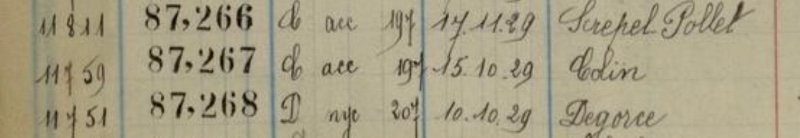 11811 87,266 C acc 197 17.11.29 Screpel Pollet
11759 87,267 C acc 197 15.10.29 Colin
11751 87,268 D nyc 207 10.10.29 Degorce